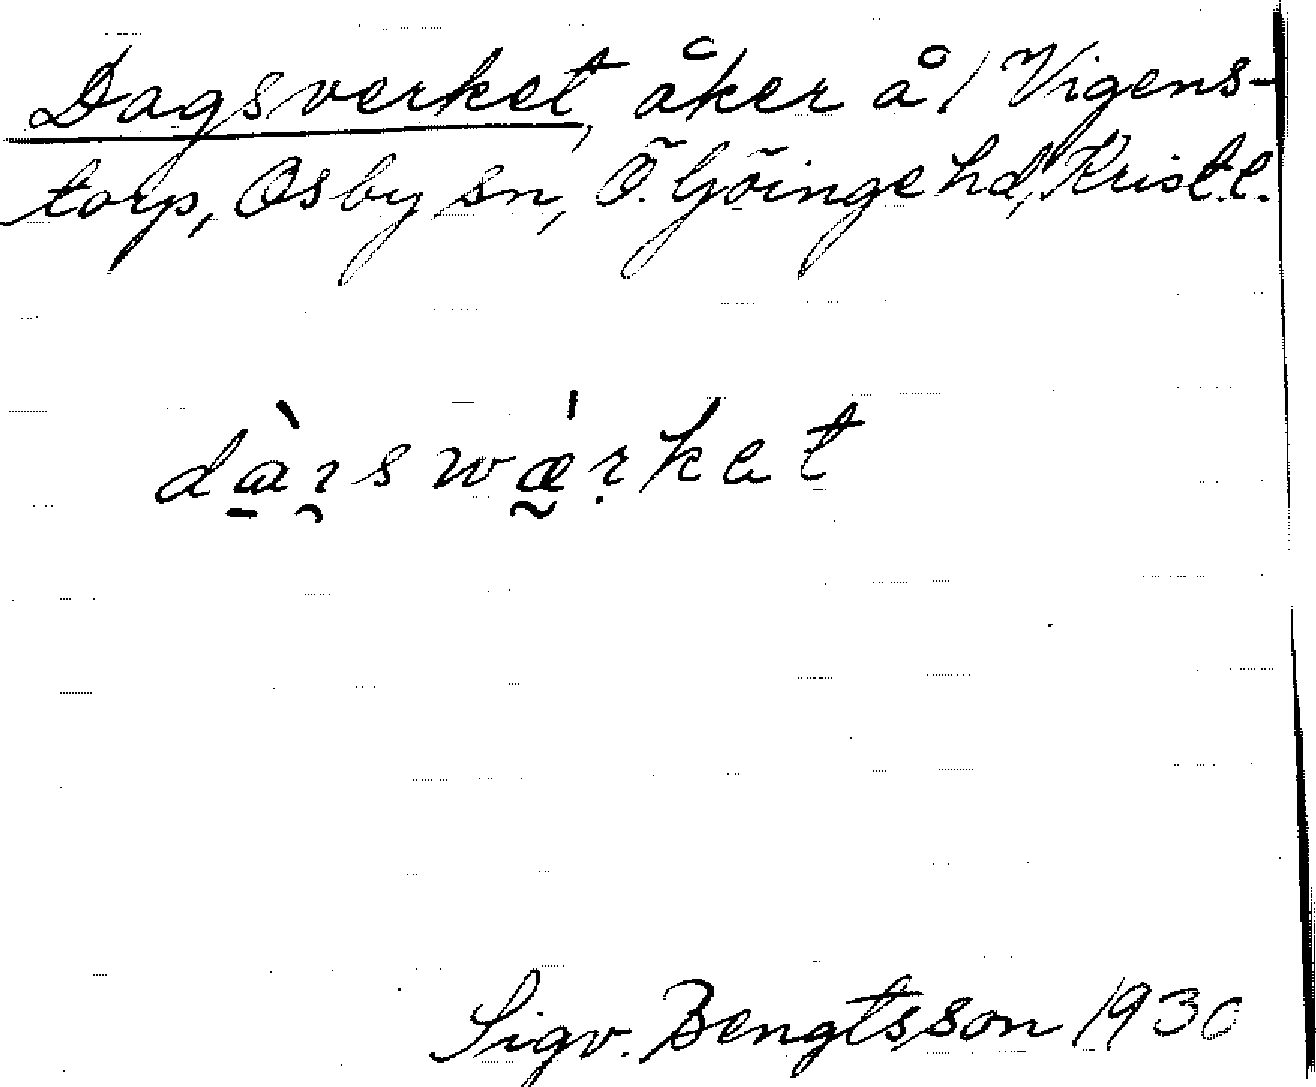 Dagsverket, åker å 1 Vigens-
torp, Osby sn, Ö. Göinge hd, Krist. l.
dàɿswǽrkat
Sigv. Bengtsson 1930